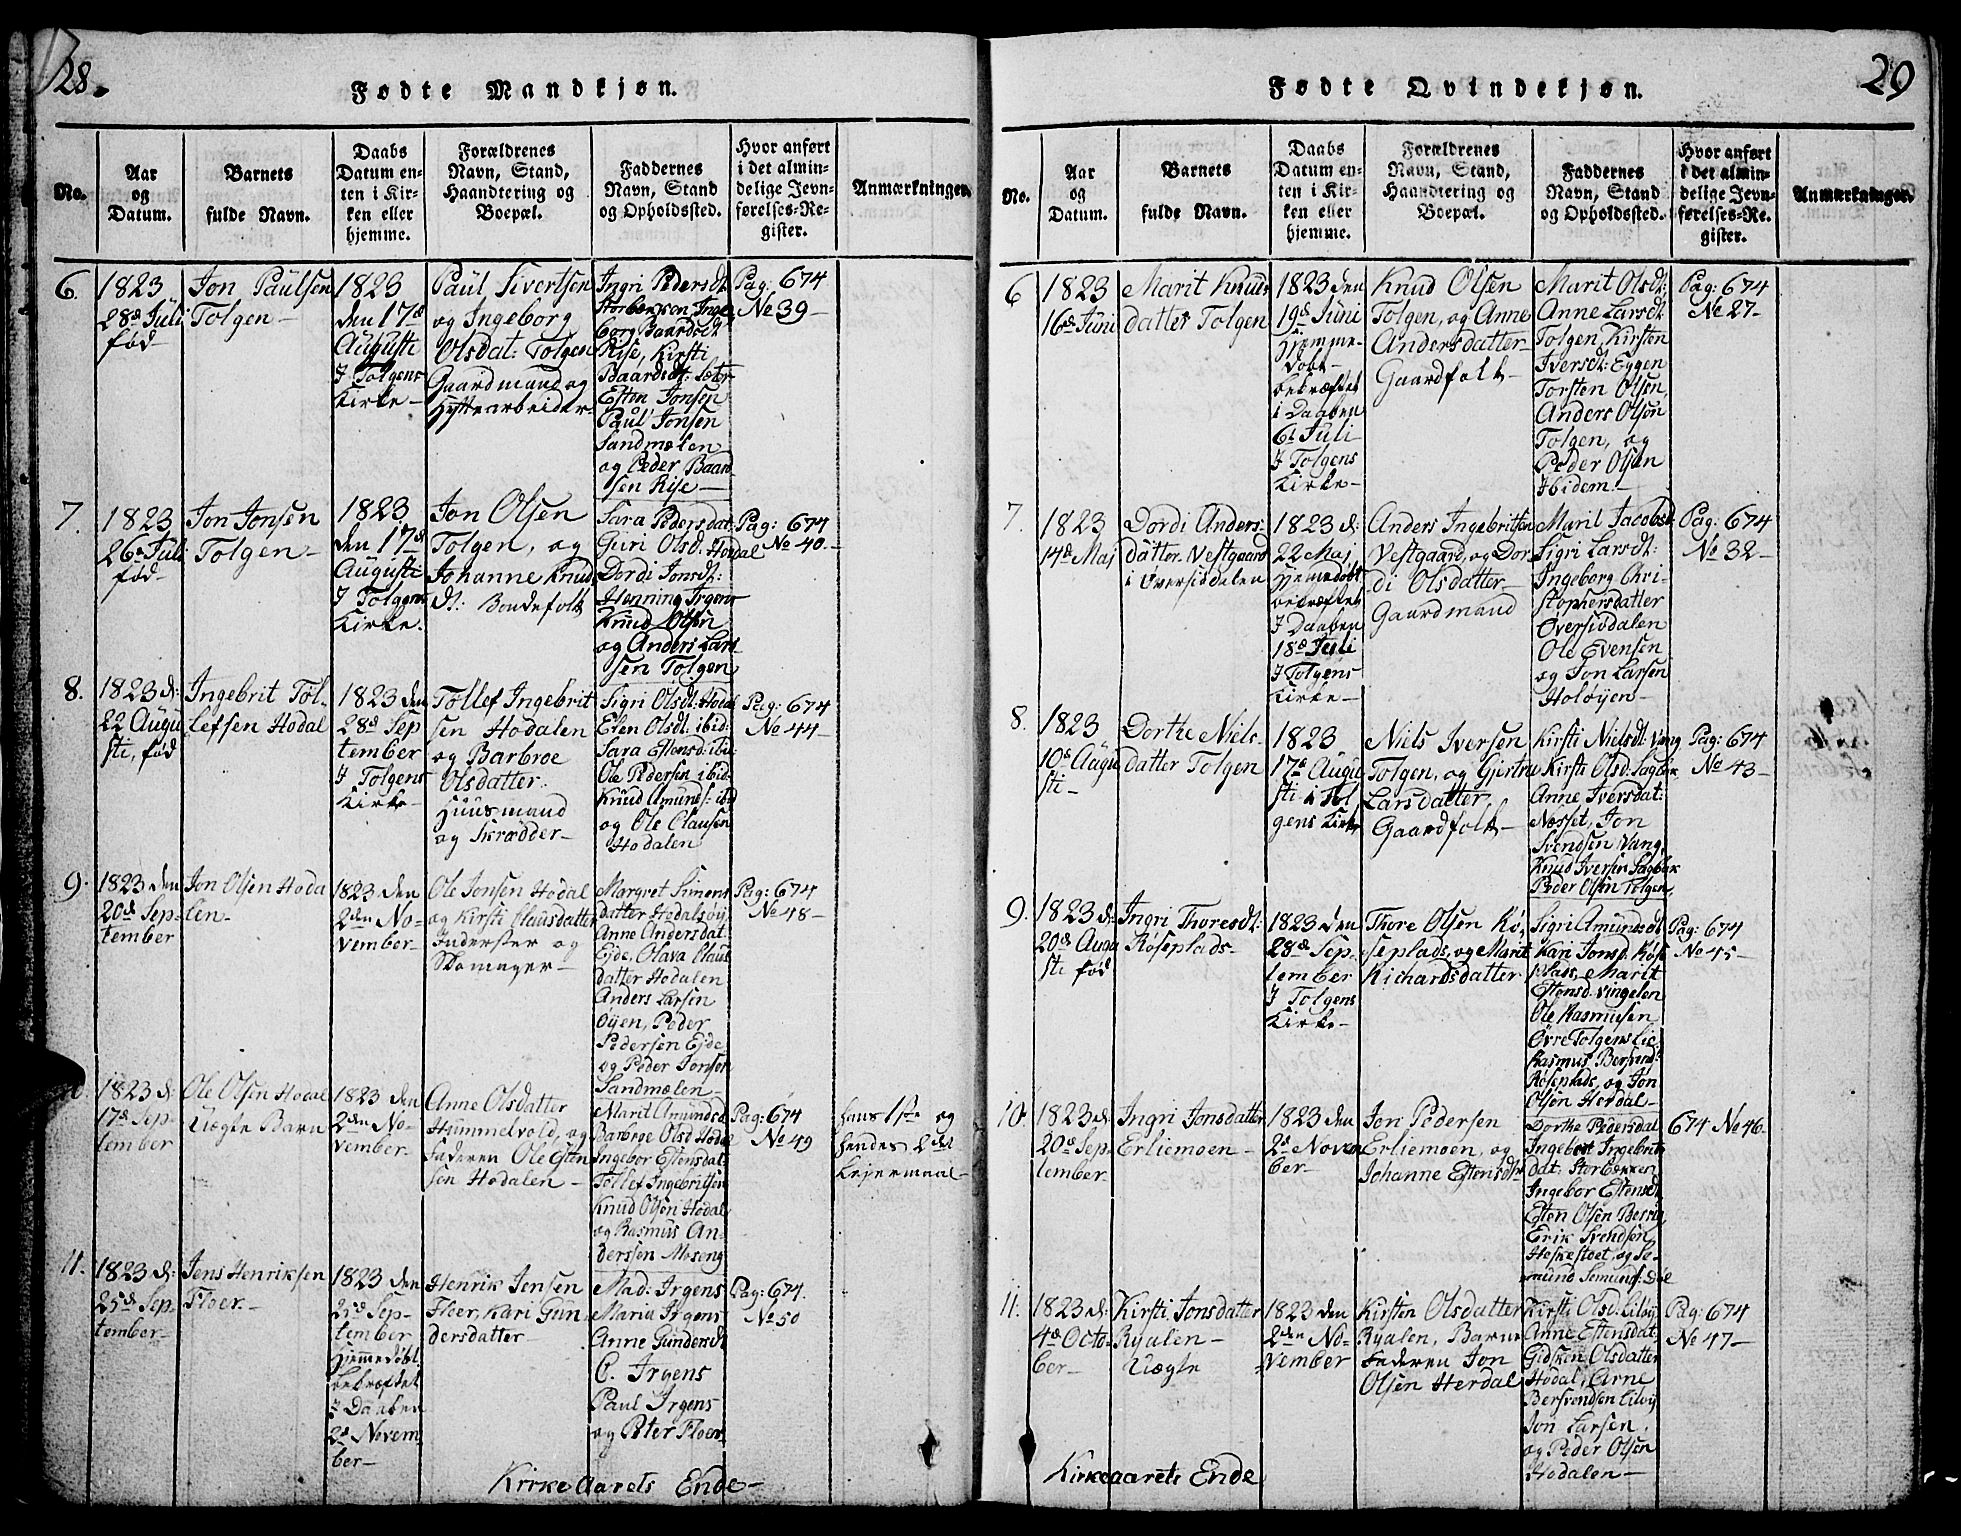 28.
Fødte Mandkjøn.
No.
Aar
og
Datum.
Barnets
fulde Navn.
Daabs
Datum en-
ten i Kir-
ken eller
hjemme.
Forældrenes
Navn, Stand,
Haandtering og
Boepæl.
Faddernes
Navn, Stand
og Opholdssted.
Hvor anført
i det almin-
delige Jevn-
førelses-Re-
gister.
Anmærkninger.
6.
1823
28d Juli
fød
Jon Paulsen
Tolgen
1823
den 17d
Augusti
I Tolgens
Kirke
Paul Sivertsen
og Ingeborg
Olsdat: Tolgen
Gaardmand og
Hyttearbeider
Ingri Pedersdt
Storbekken Inge
borg Baardsdt
Rise, Kirsti
Baardsdt: Sæter
Esten Jonsen
Paul Jonsen
Sandmælen
og Peder Baard
sen Rise
Pag: 674
No 39
7.
1823
26d Juli
fød
Jon Jonsen
Tolgen
1823
den 17d
Augusti
I Tolgens
Kirke.
Jon Olsen
Tolgen, og
Johanne Knuds
dt: Bondefolk
Sara Pedersdat
Guri Olsd: Hodal
Dordi Jonsdt:
Henning Irgens
Knud Olsen
og Anders Lars
sen Tolgen
Pag: 674
No 40
8.
1823 d:
22 Augu
sti, fød
Ingebrit Tol-
lefsen Hodal
1823 den
28d Sep
tember
I Tolgens
Kirke
Tollef Ingebrit
sen Hodalen
og Barbroe
Olsdatter
Huusmand
og Skrædder
Sigri Olsdt: Hodal
Elen Olsdt ibid:
Sara Estensd: ibid
Ole Pedersen ibid
Knud Amunds: ibid
og Ole Clausen
Hodalen
Pag: 674
No 44
9.
1823 den
20d Sep-
tember
Jon Olsen Hoda
len
1823 den
2den No-
vember
Ole Jonsen Hodal
og Kirsti Clausdatter
Inderster og
Skomager
Margret Simens
datter Hodalsøÿ
Anne Andersdat
Ejde, Olava Claus
datter Hodalen
Anders Larsen
Øÿen, Peder
Pedersen Ejde
og Peder Jonsen
Sandmælen
Pag: 674
No 48
10.
1823 d:
17d Sep-
tember
Ole Olsen Hodal
Uægte Barn
1823 den
2den No-
vember
Anne Olsdatter
Hummelvold, og
Faderen Ole Esten
sen Hodalen
Marit Amundsd
Barbroe Olsd Hodal
Ingebor Estensdat
Tollef Ingebritsen
Knud Olsen Hodal
og Rasmus An-
derssen Moseng
Pag: 674
No 49
hans 1ste og
hendes 2det
Leiermaal
11.
1823 d:
25d Sep-
tember
Jens Henriksen
Floer.
1823 den
25d Sep-
tember
Hjemmedøbt
bekræftet
I Daaben
2d Novem
ber
Henrik Jensen
Floer, Kari Gun
dersdatter
Mad: Irgens
Maria Irgens
Anne Gundersdt
C. Irgens
Paul Irgens
og Peter Floer
Pag: 674.
No 50
Kirke Aarets Ende
29
Fødte Qvindekjøn.
No.
Aar
og
Datum.
Barnets
fulde Navn.
Daabs
Datum en-
ten i Kir-
ken eller
hjemme.
Forældrenes
Navn, Stand,
Haandtering og
Boepæl.
Faddernes
Navn, Stand
og Opholdssted.
Hvor anført
i det almin-
delige Jevn-
førelses-Re-
gister.
Anmærkninger.
6
1823
16d Juni
Marit Knuds
datter Tolgen
1823 den
19d Juni
Hjemme-
døbt
bekræftet
i Daaben
6t Juli
I Tolgens
Kirke
Knud Olsen
Tolgen, og Anne
Andersdatter
Gaardfolk
Marit Olsdt:
Anne Larsdt
Tolgen, Kirsten
Iversdt: Eggen
Torsten Olsen,
Anders Olsen
Tolgen, og
Peder Olsen
Ibidem.
Pag: 674
No 27
7
1823
14d Maj
Dordi Anders-
datter Vestgaard
i Øversiddalen
1823 d:
22 Maj
Hjemedøbt
bekræftet
I Daaben
18d Juli
I Tolgens
Kirke
Anders Ingebritsen
Vestgaard, og Dor
di Olsdatter
Gaardmand
Marit Jacobsd
Sigri Larsdt:
Ingeborg Chri-
stophersdatter
Oversiødalen
Ole Evensen
og Jon Larsen
Holøÿen
Pag: 674
No 32
8.
1823
10d Augu
sti
Dorthe Niels-
datter Tolgen
1823
17d Augu
sti i Tol
gens Kirke
Niels Iversen
Tolgen, og Gjertru
Larsdatter
Gaardfolk
Kirsti Nielsdt: Vang
Kirsti Olsd: Sagbak
Anne Iversdat:
Næsset, Jon
Svendsen Vang,
Knud Iversen Sagbak
Peder Olsen Tolgen
Pag: 674
No 43
9.
1823 d:
20d Augu
sti fød
Ingri Thoresdt:
Røseplads
1823 den
28d Sep-
tember
I Tolgens
Kirke
Thore Olsen Rø-
seplads, og Marit
Richardsdatter
Sigri Amundsdt
Kari Jonsd: Røse
plads, Marit
Estensd. Vingelen
Ole Rasmusen
Øvre Tolgens Lie,
Rasmus Bersvend
Røseplads, og Jon
Olsen Herdal
Pag: 674
No 45
10.
1823 d:
20d Sep-
tember
Ingri Jonsdatter
Erliemoen
1823 den
2d Novem
ber
Jon Pedersen
Erliemoen, og
Johanne Estensdt:
Dorthe Pedersdat
Ingebor Ingebrits
dat: Storbækken
Ingebor Estensdt
Esten Olsen
Erik Svendsen
674 No 46
11.
1823 d:
4d Octo
ber
Kirsti Jonsdatter
Ryalen
Uægte
1823 den
2den No-
vember
Kirsten Olsdatter
Ryalen, Barne
Faderen Jon
Olsen Herdal
Kirsti Olsd: Liløÿ
Anne Estensdat:
Gidsken Olsdatter
Hodal, Arne
Bersvendsen Liløÿ
Jon Larsen,
og Peder Olsen
Hodalen
Pag: 674
No 47
Kirkeaarets Ende